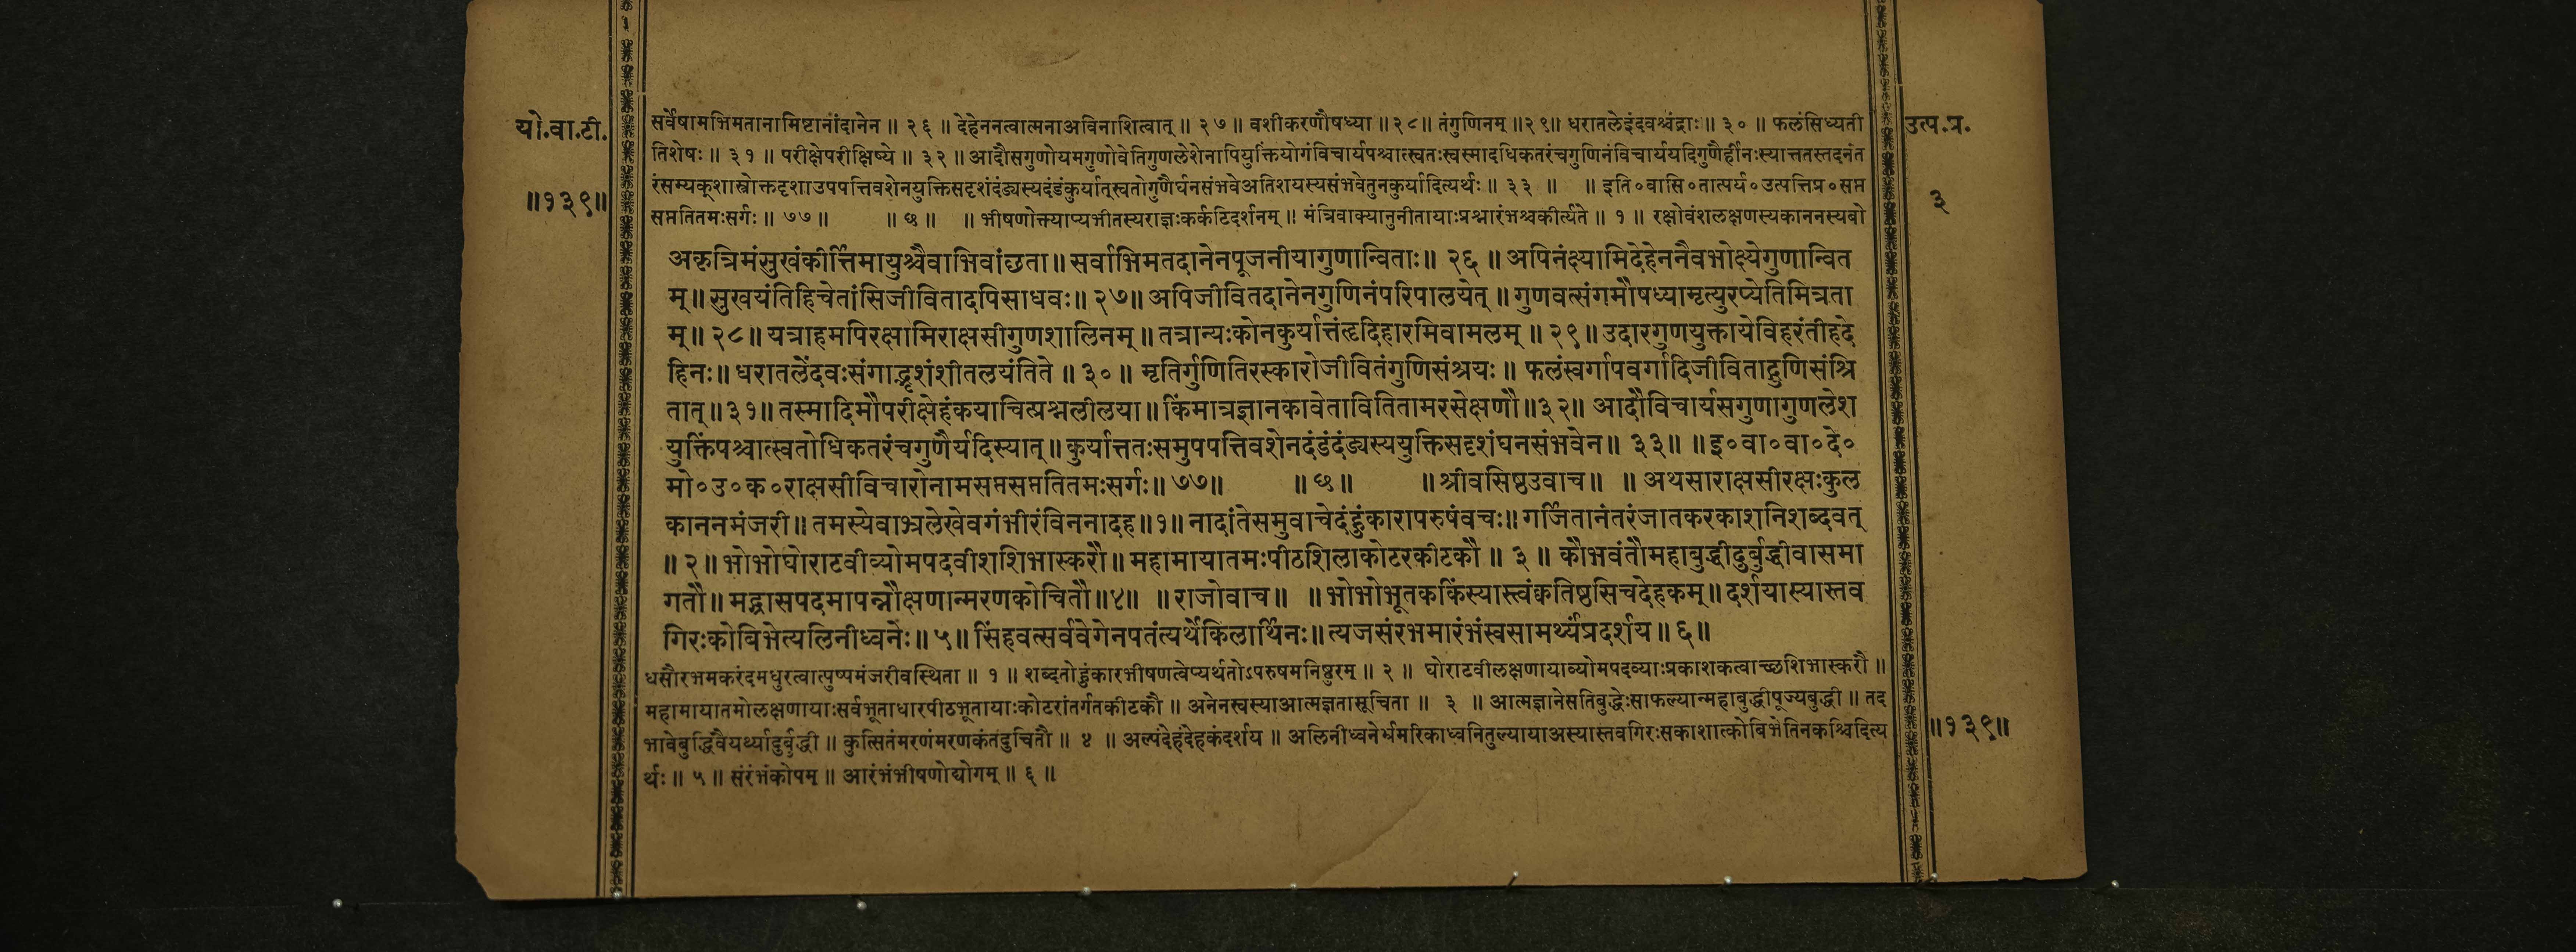 यो.वा.टी.
॥१३९॥
सर्वेषामभिमतानामिष्टानांदानेन ॥ २६ ॥ देहेननत्वात्मनाअविनाशित्वात् ॥ २७ ॥ वशीकरणौषध्या ॥२८॥ तंगुणिनम् ॥२९॥ धरातलेइंदवश्चंद्राः ॥ ३० ॥ फलंसिध्यती
तिशेषः ॥ ३१ ॥ परीक्षेपरीक्षिष्ये ॥ ३२ ॥ आदौसगुणोयमगुणोवेतिगुणलेशेनापियुक्तियोगंविचार्यपश्चात्स्वतःस्वस्मादधिकतरंचगुणिनंविचार्ययदिगुणैर्हीनःस्यात्ततस्तदनंत
रंसम्यक्शास्त्रोक्तदृशाउपपत्तिवशेनयुक्तिसदृशंदंड्यस्यदंडंकुर्यात्स्वतोगुणैर्घनसंभवेअतिशयस्यसंभवेतुनकुर्यादित्यर्थः ॥ ३३ ॥ ॥ इति०वासि०तात्पर्य०उत्पत्तिप्र०सप्त
सप्ततितमःसर्गः ॥ ७७ ॥ ॥ ७ ॥ ॥ भीषणोक्त्याप्यभीतस्यराज्ञःकर्कटिदर्शनम् ॥ मंत्रिवाक्यानुनीतायाःप्रश्नारंभश्चकीर्त्यते ॥ १ ॥ रक्षोवंशलक्षणस्यकाननस्यबो
अकृत्रिमंसुखंकीर्त्तिमायुश्चैवाभिवांछता ॥ सर्वाभिमतदानेनपूजनीयागुणान्विताः ॥ २६ ॥ अपिनंक्ष्यामिदेहेननैवभोक्ष्येगुणान्वित
म् ॥ सुखयंतिहिचेतांसिजीवितादपिसाधवः ॥ २७ ॥ अपिजीवितदानेनगुणिनंपरिपालयेत् ॥ गुणवत्संगमौषध्यामृत्युरप्येतिमित्रता
म् ॥ २८ ॥ यत्राहमपिरक्षामिराक्षसीगुणशालिनम् ॥ तत्रान्यःकोनकुर्यात्तंहृदिहारमिवामलम् ॥ २९ ॥ उदारगुणयुक्तायेविहरंतीहदे
हिनः ॥ धरातलेंदवःसंगाद्भृशंशीतलयंतिते ॥ ३० ॥ मृतिर्गुणितिरस्कारोजीवितंगुणिसंश्रयः ॥ फलंस्वर्गापवर्गादिजीविताद्गुणिसंश्रि
तात् ॥ ३१ ॥ तस्मादिमौपरीक्षेहंकयाचित्प्रश्नलीलया ॥ किंमात्रज्ञानकावेतावितितामरसेक्षणौ ॥३२॥ आदौविचार्यसगुणागुणलेश
युक्तिंपश्चात्स्वतोधिकतरंचगुणैर्यदिस्यात् ॥ कुर्यात्ततःसमुपपत्तिवशेनदंडंदंड्यस्ययुक्तिसदृशंघनसंभवेन ॥ ३३ ॥ ॥ इ०वा०वा०दे०
मो०उ०क०राक्षसीविचारोनामसप्तसप्ततितमःसर्गः ॥ ७७ ॥ ॥ ७ ॥ ॥ श्रीवसिष्ठउवाच ॥ ॥ अथसाराक्षसीरक्षःकुल
काननमंजरी ॥ तमस्येवाभ्रलेखेवगंभीरंविननादह ॥१॥ नादांतेसमुवाचेदंहुंकारापरुषंवचः ॥ गर्जितानंतरंजातकरकाशनिशब्दवत्
॥ २ ॥ भोभोघोराटवीव्योमपदवीशशिभास्करौ ॥ महामायातमःपीठशिलाकोटरकीटकौ ॥ ३ ॥ कौभवंतौमहाबुद्धीदुर्बुद्धीवासमा
गतौ ॥ मद्ग्रासपदमापन्नौक्षणान्मरणकोचितौ ॥४॥ ॥ राजोवाच ॥ ॥ भोभोभूतककिंस्यास्त्वंक्वतिष्ठसिचदेहकम् ॥ दर्शयास्यास्तव
गिरःकोबिभेत्यलिनीध्वनेः ॥ ५ ॥ सिंहवत्सर्ववेगेनपतंत्यर्थेकिलार्थिनः ॥ त्यजसंरभमारंभंस्वसामर्थ्यंप्रदर्शय ॥ ६ ॥
धसौरभमकरंदमधुरत्वात्पुष्पमंजरीवस्थिता ॥ १ ॥ शब्दतोहुंकारभीषणत्वेप्यर्थतोऽपरुषमनिष्ठुरम् ॥ २ ॥ घोराटवीलक्षणायाव्योमपदव्याःप्रकाशकत्वाच्छशिभास्करौ ॥
महामायातमोलक्षणायाःसर्वभूताधारपीठभूतायाःकोटरांतर्गतकीटकौ ॥ अनेनस्वस्याआत्मज्ञतासूचिता ॥ ३ ॥ आत्मज्ञानेसतिबुद्धेःसाफल्यान्महाबुद्धीपूज्यबुद्धी ॥ तद
भावेबुद्धिवैयर्थ्याद्दुर्बुद्धी ॥ कुत्सितंमरणंमरणकंतंदुचितौ ॥ ४ ॥ अल्पंदेहंदेहकंदर्शय ॥ अलिनीध्वनेर्भ्रमरिकाध्वनितुल्यायाअस्यास्तवगिरःसकाशात्कोबिभेतिनकश्चिदित्य
र्थः ॥ ५ ॥ संरंभंकोपम् ॥ आरंभंभीषणोद्योगम् ॥ ६ ॥
उत्प.प्र.
३
॥१३९॥